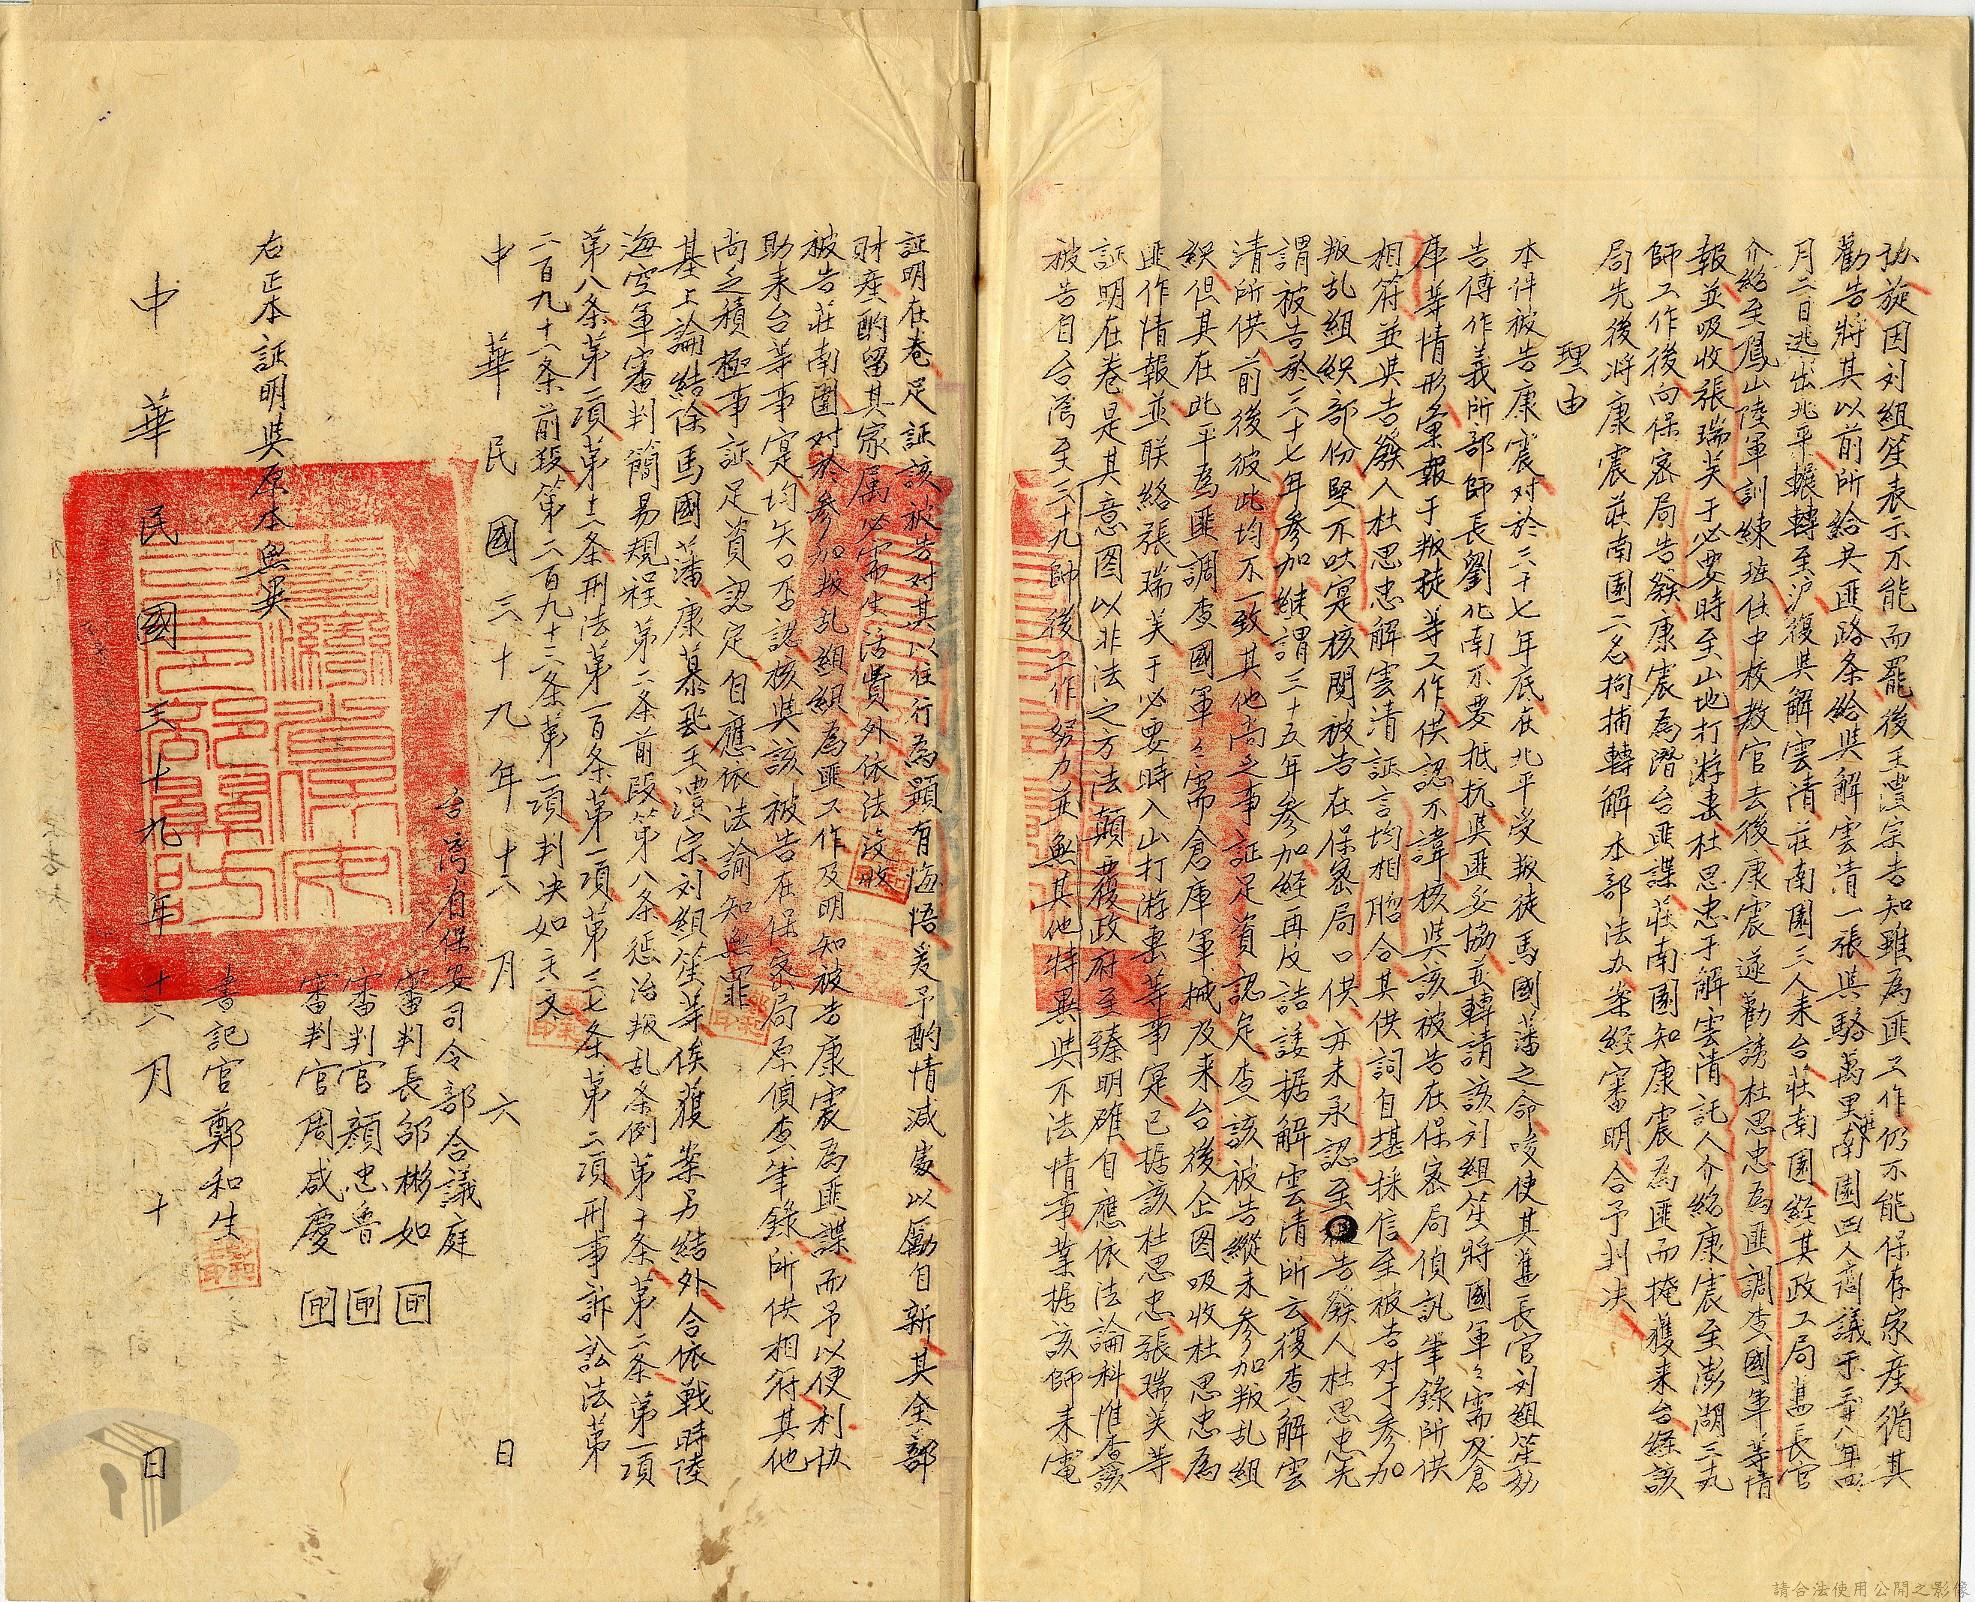 協旋因刘組笙表示不能而罷後王澧宗告知雖為匪工作仍不能保存家産循其
勸告將其以前所給共匪路条給與解雲清一張與駱萬里莊南園四人商議于三十八年四
月二日逃出北平輾轉至沪復與解雲清莊南園三人来台莊南園經其政工局舊長官
介紹至鳳山陸軍訓練班任中校教官去後康震遂勸誘杜思忠為匪調查國軍等情
報並吸收張瑞芙于必要時至山地打游击杜思忠于解雲清託人介紹康震至澎湖三九
師工作後向保密局告發康震為潛台匪諜莊南園知康震為匪而掩護来台經該
局先後將康震莊南園二名拘捕轉解本部法办業經審明合予判决
理由
本件被告康震对於三十七年底在北平受叛徒馬國藩之命唆使其舊長官刘組笙劝
告傅作義所部師長劉化南不要抵抗與匪妥協並轉請該刘組笙將國軍々需及倉
庫等情形彙報于叛徒等工作供認不諱核與該被告在保密局偵訊筆錄所供
相符並與告發人杜思忠解雲清証言均相脗合其供詞自堪採信至被告对于参加
叛乱組織部份堅不吐寔核閱被告在保密局口供亦未承認至告發人杜思忠先
謂被告於三十七年参加継謂三十五年参加經再反詰諉据解雲清所云復查解雲
清所供前後彼此均不一致其他尚乏事証足資認定查該被告縱未参加叛乱組
織但其在北平為匪調查國軍々需倉庫軍械及来台後企图吸收杜思忠為
匪作情報並联絡張瑞芙于必要時入山打游击等事寔已据該杜思忠張瑞芙等
証明在卷是其意图以非法之方法顛覆政府至臻明確自應依法論科惟查該
被告自台湾至三十九師後工作努力並無其他特異與不法情事業据該師来電
証明在卷足証該被告对其以往行為顯有悔悟爰予酌情減處以勵自新其全部
財産酌留其家属必需生活費外依法没收
被告莊南園对於参加叛乱組織為匪工作及明知被告康震為匪諜而予以便利协
助来台等事寔均矢口否認核與該被告在保密局原偵查筆錄所供相符其他
尚乏積極事証足資認定自應依法諭知無罪
基上論結除馬國藩康慕飛王澧宗刘組笙等俟獲案另結外合依戰時陸
海空軍審判簡易規程第二条前段第八条惩治叛乱条例第十条第二条第一項
第八条第一項第十二条刑法第一百条第一項第三七条第二項刑事訴訟法第
二百九十一条前段第二百九十三条第一項判决如主文
中華民國三十九年十六月六日
台湾省保安司令部合議庭
審判長邰彬如 印
審判官顔忠魯 印
審判官周咸慶 印
右正本証明與原本無異
書記官鄭和生
中華民國三十九年十六月十日
請合法使用公開之影像